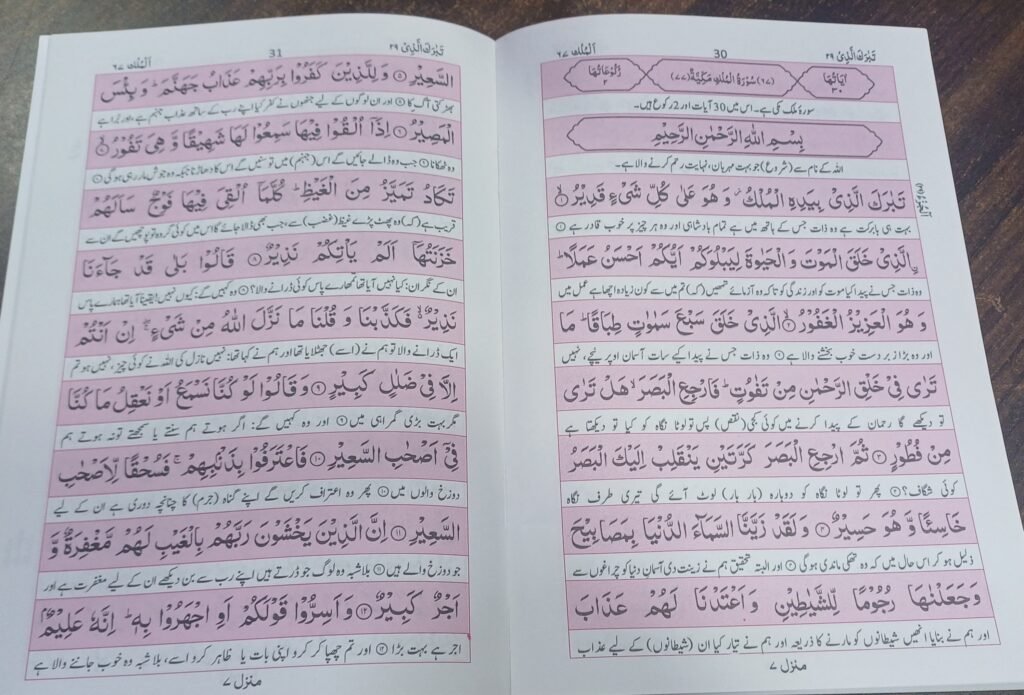 تَبٰرَكَ الَّذِیْ ٢٩
30
اَلْمُلْك ٦٧
اٰیَاتُهَا ٣٠
(٦٧) سُوْرَةُ الْمُلْكِ مَكِّیَّةٌ (٧٧)
رُكُوْعَاتُهَا ٢
سورۂ ملک مکی ہے۔ اس میں 30 آیات اور 2 رکوع ہیں۔
بِسْمِ اللّٰهِ الرَّحْمٰنِ الرَّحِیْمِ
اللہ کے نام سے (شروع) جو بہت مہربان، نہایت رحم کرنے والا ہے۔
تَبٰرَكَ الَّذِیْ بِیَدِهِ الْمُلْكُ ؗ وَ هُوَ عَلٰی كُلِّ شَیْءٍ قَدِیْرُ ۙ﴿١﴾
بہت ہی بابرکت ہے وہ ذات جس کے ہاتھ میں ہے تمام بادشاہی اور وہ ہر چیز پر خوب قادر ہے ①
ِ۟الَّذِیْ خَلَقَ الْمَوْتَ وَ الْحَیٰوةَ لِیَبْلُوَكُمْ اَیُّكُمْ اَحْسَنُ عَمَلًا ؕ
وہ ذات جس نے پیدا کیا موت کو اور زندگی کو تاکہ وہ آزمائے تمھیں (کہ) تم میں سے کون زیادہ اچھا ہے عمل میں
وَ هُوَ الْعَزِیْزُ الْغَفُوْرُ ۙ﴿٢﴾ الَّذِیْ خَلَقَ سَبْعَ سَمٰوٰتٍ طِبَاقًا ؕ مَا
اور وہ بڑا زبردست خوب بخشنے والا ہے ② وہ ذات جس نے پیدا کیے سات آسمان اوپر نیچے، نہیں
تَرٰی فِیْ خَلْقِ الرَّحْمٰنِ مِنْ تَفٰوُتٍ ؕ فَارْجِعِ الْبَصَرَ ۙ هَلْ تَرٰی
تو دیکھے گا رحمان کے پیدا کرنے میں کوئی کجی (نقص) پس تو لوٹا نگاہ کو کیا تو دیکھتا ہے
مِنْ فُطُوْرٍ ﴿٣﴾ ثُمَّ ارْجِعِ الْبَصَرَ كَرَّتَیْنِ یَنْقَلِبْ اِلَیْكَ الْبَصَرُ
کوئی شگاف؟ ③ پھر تو لوٹا نگاہ کو دوبارہ (بار بار) لوٹ آئے گی تیری طرف نگاہ
خَاسِئًا وَّ هُوَ حَسِیْرٌ ﴿٤﴾ وَ لَقَدْ زَیَّنَّا السَّمَآءَ الدُّنْیَا بِمَصَابِیْحَ
ذلیل ہو کر اس حال میں کہ وہ تھکی ماندی ہو گی ④ اور البتہ تحقیق ہم نے زینت دی آسمان دنیا کو چراغوں سے
وَ جَعَلْنٰهَا رُجُوْمًا لِّلشَّیٰطِیْنِ وَ اَعْتَدْنَا لَهُمْ عَذَابَ
اور ہم نے بنایا انھیں شیطانوں کو مارنے کا ذریعہ اور ہم نے تیار کیا ان (شیطانوں) کے لیے عذاب
منزل ٧
تَبٰرَكَ الَّذِیْ ٢٩
31
اَلْمُلْك ٦٧
السَّعِیْرِ ﴿٥﴾ وَ لِلَّذِیْنَ كَفَرُوْا بِرَبِّهِمْ عَذَابُ جَهَنَّمَ ؕ وَ بِئْسَ
بھڑکتی آگ کا ⑤ اور ان لوگوں کے لیے جنھوں نے کفر کیا اپنے رب کے ساتھ عذاب جہنم ہے، اور بُرا ہے
الْمَصِیْرُ ﴿٦﴾ اِذَاۤ اُلْقُوْا فِیْهَا سَمِعُوْا لَهَا شَهِیْقًا وَّ هِیَ تَفُوْرُ ۙ﴿٧﴾
وہ ٹھکانا ⑥ جب وہ ڈالے جائیں گے اس (جہنم) میں تو سنیں گے اس کا دھاڑنا جبکہ وہ جوش مار رہی ہو گی ⑦
تَكَادُ تَمَیَّزُ مِنَ الْغَیْظِ ؕ كُلَّمَاۤ اُلْقِیَ فِیْهَا فَوْجٌ سَاَلَهُمْ
قریب ہے (کہ) وہ پھٹ پڑے غیظ (غضب) سے، جب بھی ڈالا جائے گا اس میں کوئی گروہ تو پوچھیں گے ان سے
خَزَنَتُهَاۤ اَلَمْ یَاْتِكُمْ نَذِیْرٌ ﴿٨﴾ قَالُوْا بَلٰی قَدْ جَآءَنَا
ان کے نگران: کیا نہیں آیا تھا تمھارے پاس کوئی ڈرانے والا؟ ⑧ وہ کہیں گے: کیوں نہیں! یقیناً آیا تھا ہمارے پاس
نَذِیْرٌ ۙ۬ فَكَذَّبْنَا وَ قُلْنَا مَا نَزَّلَ اللّٰهُ مِنْ شَیْءٍ ۖۚ اِنْ اَنْتُمْ
ایک ڈرانے والا تو ہم نے (اسے) جھٹلایا تھا اور ہم نے کہا تھا: نہیں نازل کی اللہ نے کوئی چیز، نہیں ہو تم
اِلَّا فِیْ ضَلٰلٍ كَبِیْرٍ ﴿٩﴾ وَ قَالُوْا لَوْ كُنَّا نَسْمَعُ اَوْ نَعْقِلُ مَا كُنَّا
مگر بہت بڑی گمراہی میں ⑨ اور وہ کہیں گے: اگر ہوتے ہم سنتے یا سمجھتے تو نہ ہوتے ہم
فِیْۤ اَصْحٰبِ السَّعِیْرِ ﴿١٠﴾ فَاعْتَرَفُوْا بِذَنْۢبِهِمْ ۚ فَسُحْقًا لِّاَصْحٰبِ
دوزخ والوں میں ⑩ پھر وہ اعتراف کریں گے اپنے گناہ (جرم) کا چنانچہ دوری ہے ان کے لیے
السَّعِیْرِ ﴿١١﴾ اِنَّ الَّذِیْنَ یَخْشَوْنَ رَبَّهُمْ بِالْغَیْبِ لَهُمْ مَّغْفِرَةٌ وَّ
جو دوزخ والے ہیں ⑪ بلاشبہ وہ لوگ جو ڈرتے ہیں اپنے رب سے بن دیکھے ان کے لیے مغفرت ہے اور
اَجْرٌ كَبِیْرٌ ﴿١٢﴾ وَ اَسِرُّوْا قَوْلَكُمْ اَوِ اجْهَرُوْا بِهٖ ؕ اِنَّهٗ عَلِیْمٌۢ
اجر ہے بہت بڑا ⑫ اور تم چھپا کر کرو اپنی بات یا ظاہر کرو اسے، بلاشبہ وہ خوب جاننے والا ہے
منزل ٧